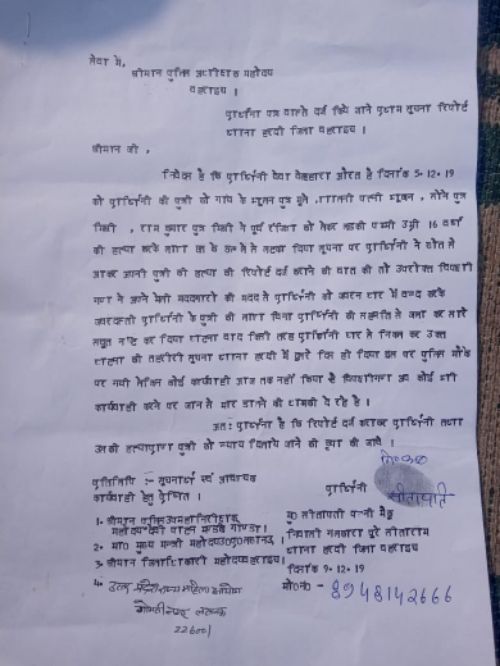 सेवा में,
श्रीमान पुलिस अधीक्षक महोदय
बहराइच ।
प्रार्थना पत्र वास्ते दर्ज किये जाने प्रथम सूचना रिपोर्ट
थाना हरदी जिला बहराइच ।
श्रीमान जी ,
निवेदन है कि प्रार्थिनी बेवा बेसहारा औरत है दिनांक 5.12.19
को प्रार्थिनी की पुत्री को गांव के पुत्र मालती पत्नी पुत्र
राम कुमार पुत्र ने पूर्व रंजिश को लेकर लडकी उम्री 16 वर्ष
की हत्या करके लाश छत के से लटका दिया सूचना पर प्रार्थिनी ने खेत से
आकर अपनी पुत्री की हत्या की रिपोर्ट दर्ज कराने की बात की तो उपरोक्त विपक्षी
गण ने अपने मेली मददगारों की मदद से प्रार्थिनी को जबरन घर में बन्द करके
जबरदस्ती प्रार्थिनी के पुत्री की लाश बिना प्रार्थिनी की सहमति से जला कर सारे
सबूत नष्ट कर दिया घटना बाद किसी तरह प्रार्थिनी घर से निकल कर उक्त
घटना की तहरीरी सूचना थाना हरदी में दिया इस पर पुलिस मौके
पर गयी लेकिन कोई कार्यवाही आज तक नहीं किया है विपक्षीगण अब कोई भी
कार्यवाही करने पर जान से मार डालने की धमकी दे रहे है ।
अतः प्रार्थना है कि रिपोर्ट दर्ज कराकर प्रार्थिनी तथा
उसकी पुत्री को न्याय दिलाये जाने की कृपा की जावे ।
प्रतिलिपि :- सूचनार्थ एवं आवश्यक
कार्यवाही हेतु प्रेषित ।
प्रार्थिनी
सीतापति
1. श्रीमान पुलिस उपमहानिरीक्षक
महोदय देवी पाटन मण्डल गोण्डा ।
2. मा0 मुख्य मन्त्री महोदय उ0प्र0 लखनऊ ।
3. श्रीमान जिलाधिकारी महोदय बहराइच ।
4. उत्तर प्रदेश राज्य महिला आयोग
गोमती नगर लखनऊ
226001
सीतापति पत्नी
निवासी पुरे सीताराम
थाना हरदी जिला बहराइच
दिनांक 9.12.19
मो0नं0 - 8948142666